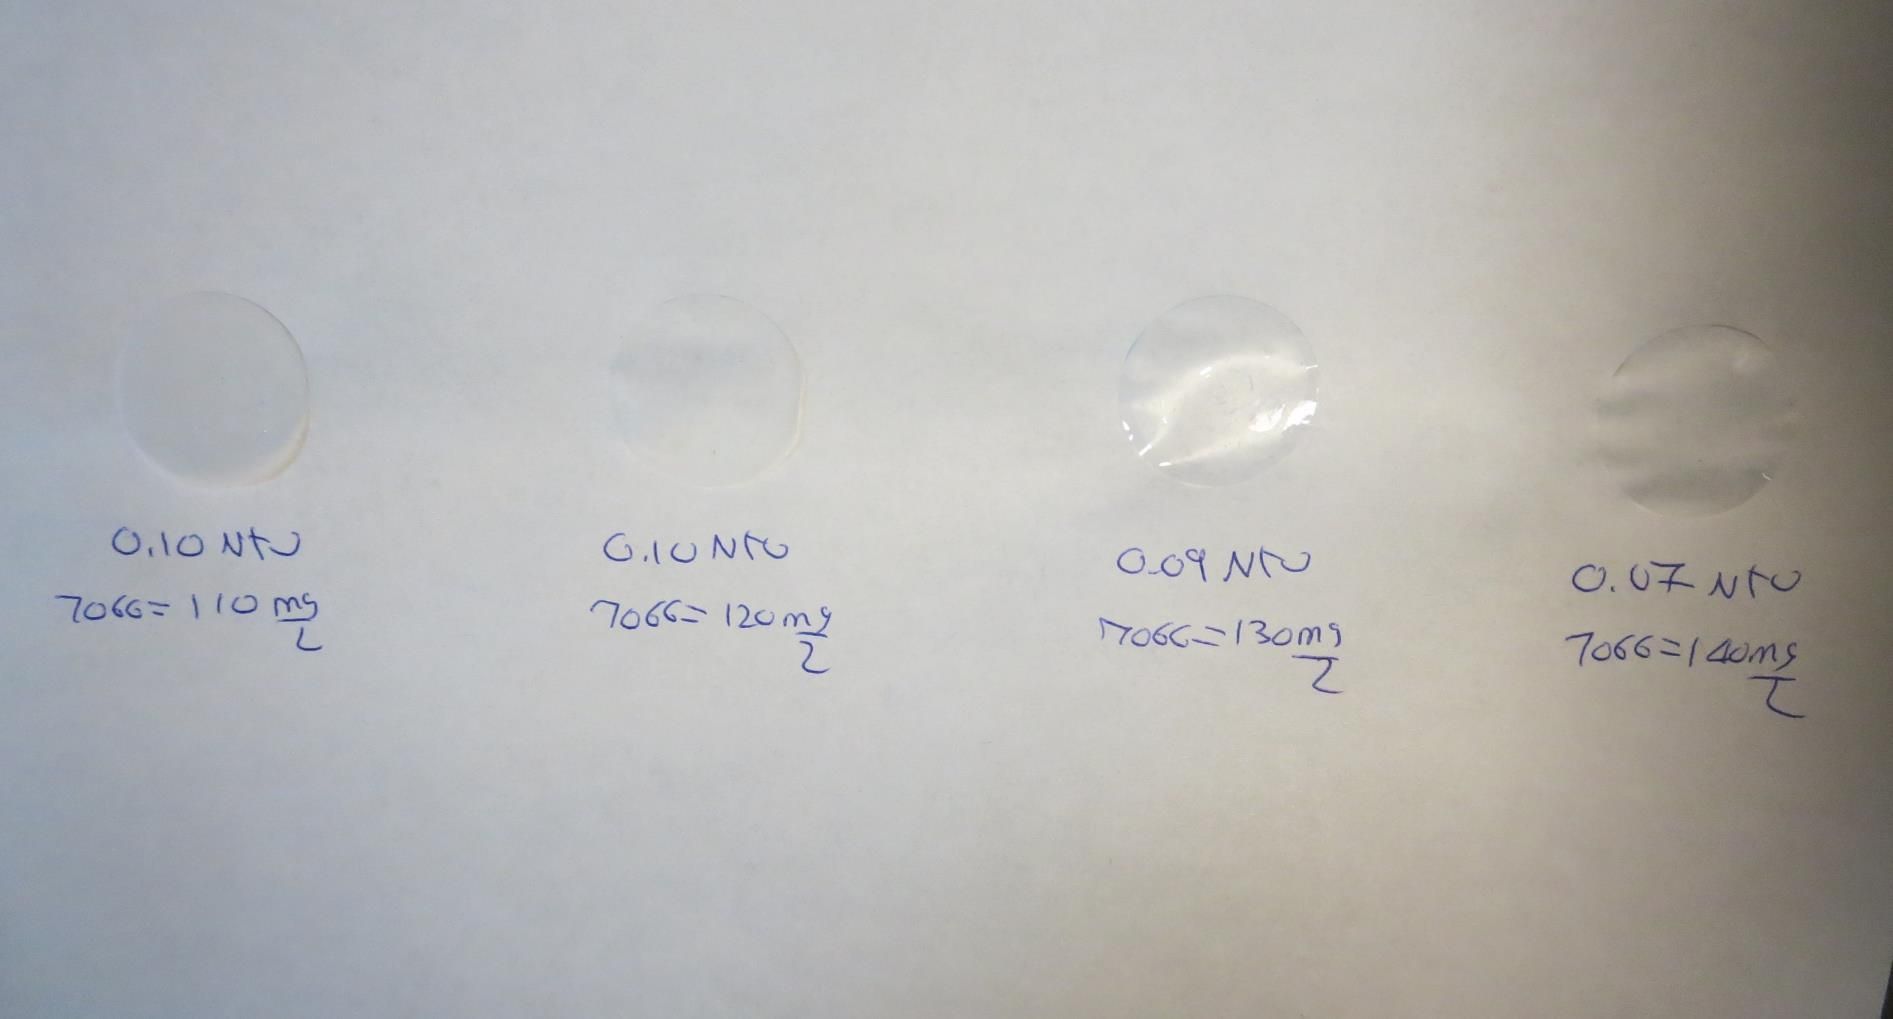 0.10 NTU
7066= 110 mg/L
0.10 NTU
7066= 120 mg/L
0.09 NTU
7066=130mg/L
0.07 NTU
7066=140mg/L